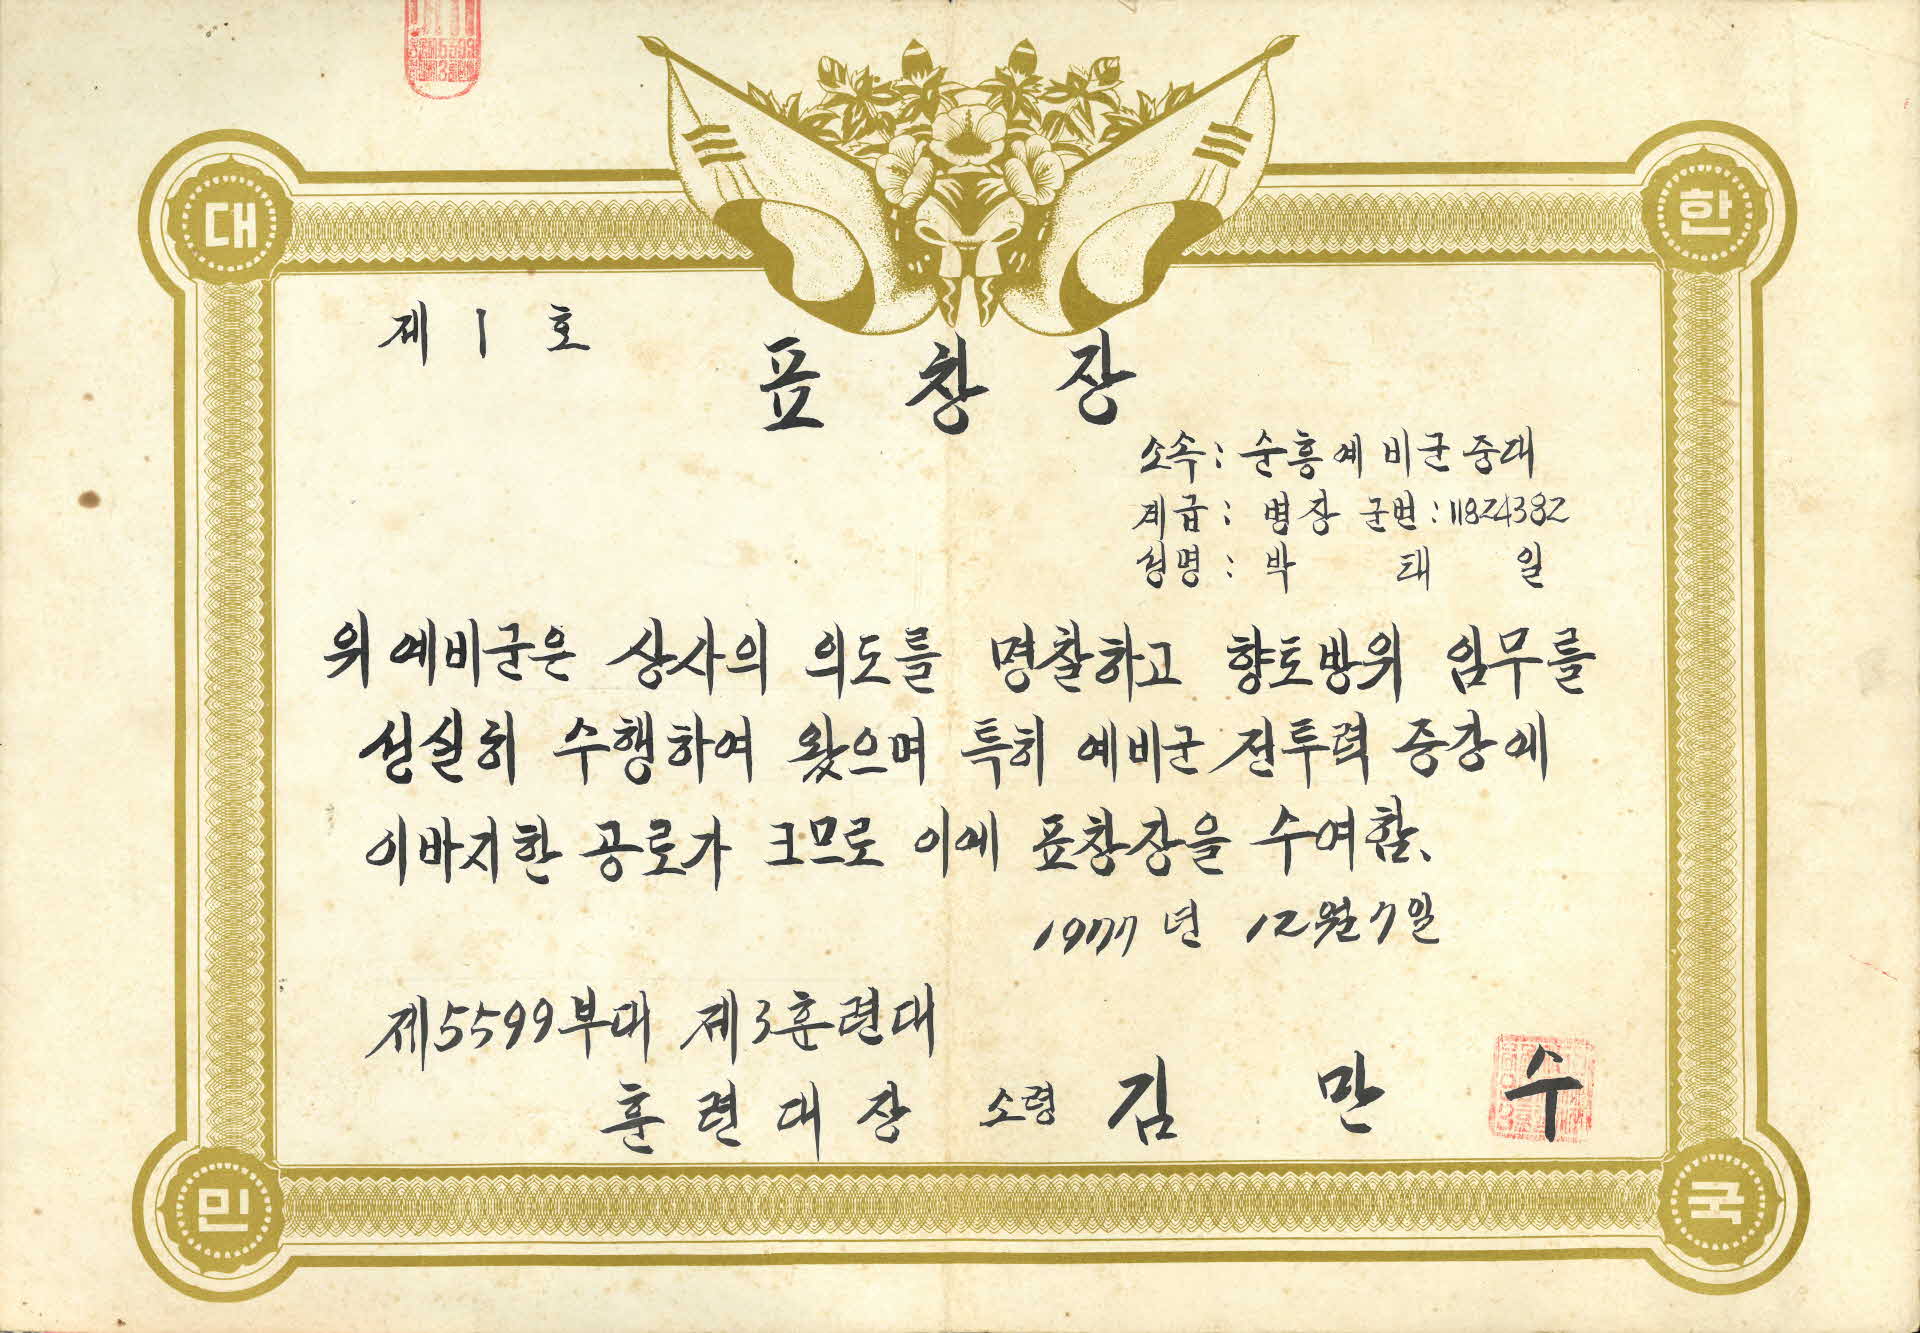 대 한
제 1 호
표 창 장
소속 : 순흥예비군중대
계급 : 병장 군번 : 11824382
성명 : 박 태 일
위 예비군은 상사의 의도를 명찰하고 향토방위 임무를
성실히 수행하여 왔으며 특히 예비군 전투력 증강에
이바지한 공로가 크므로 이에 표창장을 수여함.
1977년 12월 7일
제5599부대 제3훈련대
훈련대장 소령 김 만 수
민 국